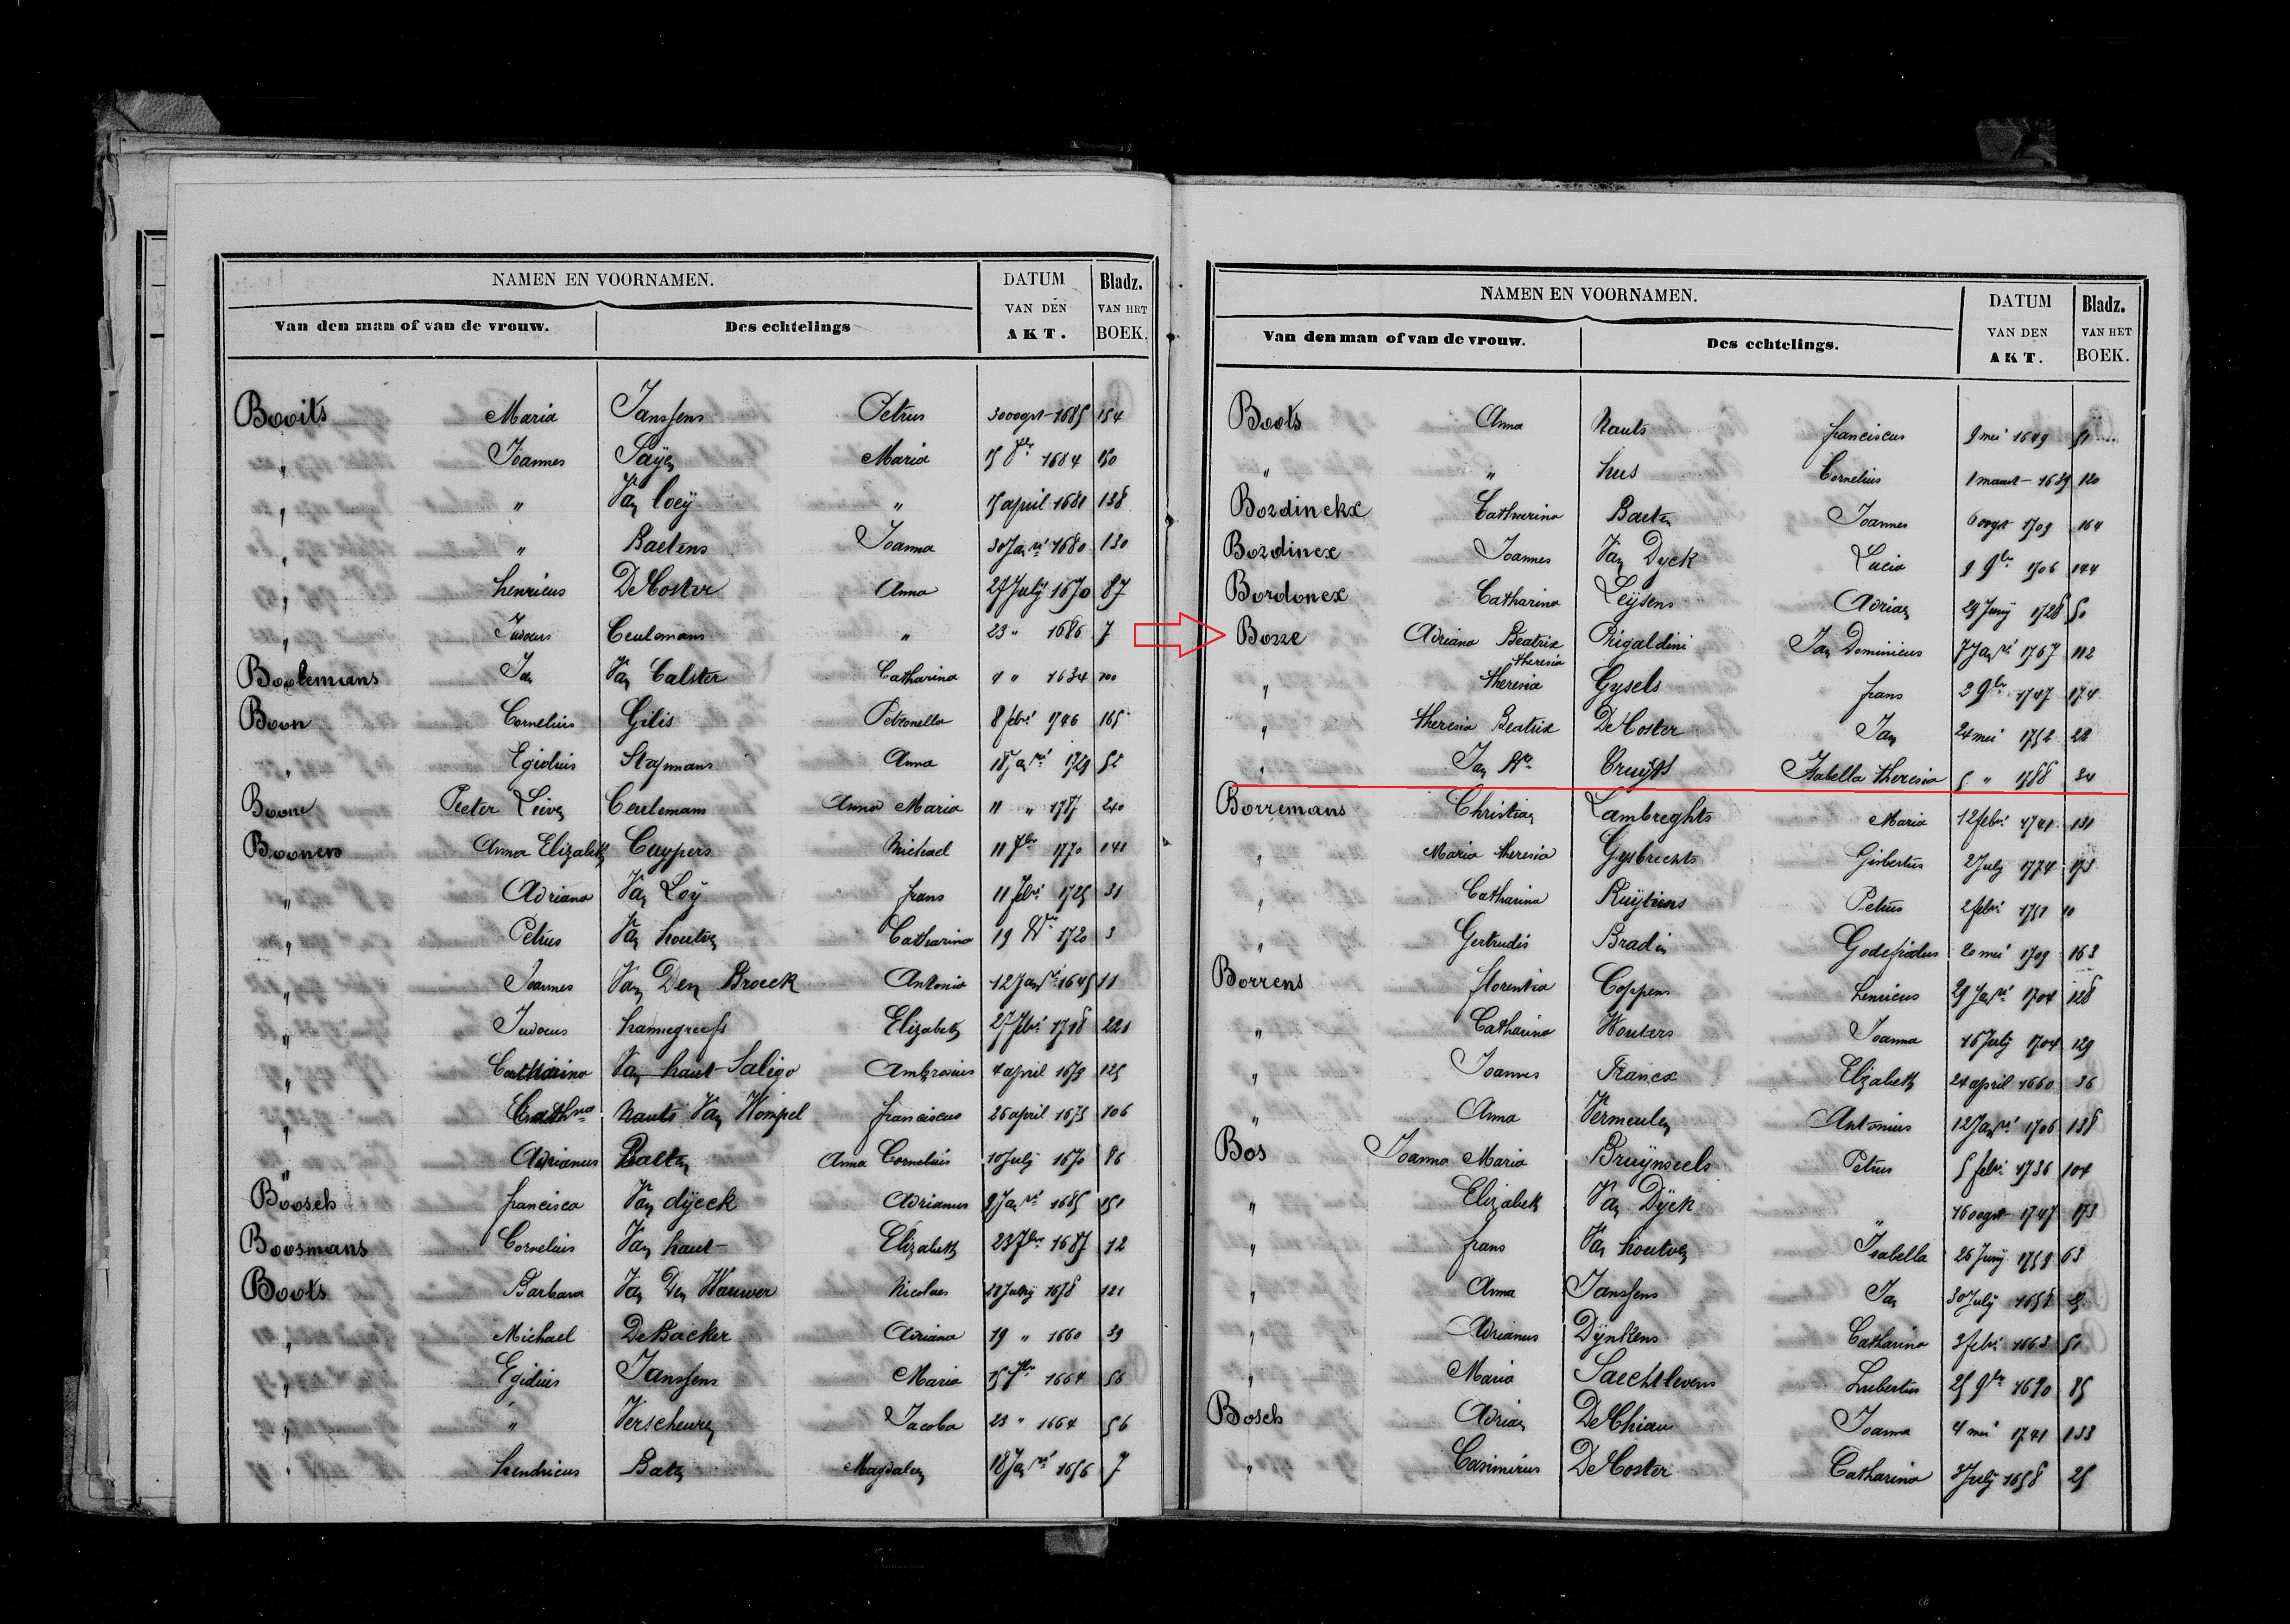 NAMEN EN VOORNAMEN.
DATUM VAN DEN AKT.
Bladz. VAN HET BOEK.
Van den man of van de vrouw.
Des echtelings
Booits Maria Janssens Petrus 30 oogst 1685 154
" Joannes Maria 1684 150
" " Van Loeÿ " 15 april 1681 138
" " Baetens Joanna 30 Janri 1680 130
" henricus De Coster Anna 27 Julÿ 1670 87
" Judocus Ceulemans " 23 " 1686 7
Jan Van Calster Catharina 4 " 1634 100
Boon Cornelius Gilis Petronella 8 febri 1746 165
" Egidius Anna 18 Janri 1729
Boone Peeter Lieven Ceulemans Anna Maria 11 " 1787 240
Boonen Anna Elizabeth Cuypers Michael 11 7bre 1770 141
" Adriana Van Loÿ frans 11 febri 1725 31
" Petrus Van houtven Catharina 19 1720 3
" Joannes Van Den Broeck Antonia 12 Janri 1645 11
" Judocus hannegreefs Elizabeth 27 febri 1718 221
" Catharina Van haut-Saligo Ambrosius 4 april 1679 125
" Cathna Nauts Van Wompel franciscus 26 april 1675 106
" Adrianus Baeten Anna Cornelius 10 Julÿ 1670 86
Boosch francisca Van dÿeck Adrianus 9 Janri 1685 151
Boosmans Cornelius Van haut Elizabeth 23 7bre 1687 12
Boots Barbara Van Den Wauwer Nicolaes 1678 121
" Michael De Backer Adriana 19 " 1660 39
" Egidius Janssens Maria 15 7bre 1664 56
" " Verscheuren Jacoba 23 " 1664 56
" hendricus Baten Magdalen 18 Janri 1656 7
NAMEN EN VOORNAMEN.
DATUM VAN DEN AKT.
Bladz. VAN HET BOEK.
Van den man of van de vrouw.
Des echtelings.
Boots Anna Nauts franciscus 9 mei 1649 51
" " hus Cornelius 1 maart 1639 120
Bordinckx Catharina Baeten Joannes 6 oogst 1709 164
Bordinex Joannes Van Dyck Lucia 9 9bre 1706 144
Bordonex Catharina Leÿsens Adriaen 29 Junÿ 1728 50
Borre Adriana Beatrix theresia Rigaldini Jan Dominicus 7 Janri 1767 112
" theresia Gysels frans 2 9bre 1747 174
" theresia Beatrix De Coster Jan 24 mei 1752 22
" Jan Bta Cruÿts Isabella theresia 5 " 1788 34
Borremans Christiaen Lambreghts Maria 12 febri 1741 131
" Maria theresia Gysbrechts Gisbertus 2 July 1774 173
" Catharina Ruÿtens Petrus 2 febri 1751 10
" Gertrudis Bradin Godefridus 20 mei 1709 163
Borrens florentia Coppens henricus 29 Janri 1704 128
" Catharina Wouters Joanna 16 July 1704 129
" Joannes Francx Elizabeth 24 april 1660 36
" Anna Vermeulen Antonius 12 Janri 1706 138
Bos Joanna Maria Bruÿnseels Petrus 5 febri 1736 104
" Elizabeth Van Dÿck " 16 oogst 1747 173
" frans Van houtven Isabella 26 Junÿ 1759 63
" Anna Janssens Jan 30 July
" Adrianus Dÿnkens Catharina 3 febri 1663 51
" Maria Saechtlevens Lubertus 25 9bre 1690 85
Bosch Adriaen De Chiau Joanna 4 mei 1741 133
" Casimirius De Coster Catharina 3 Julÿ 1658 25